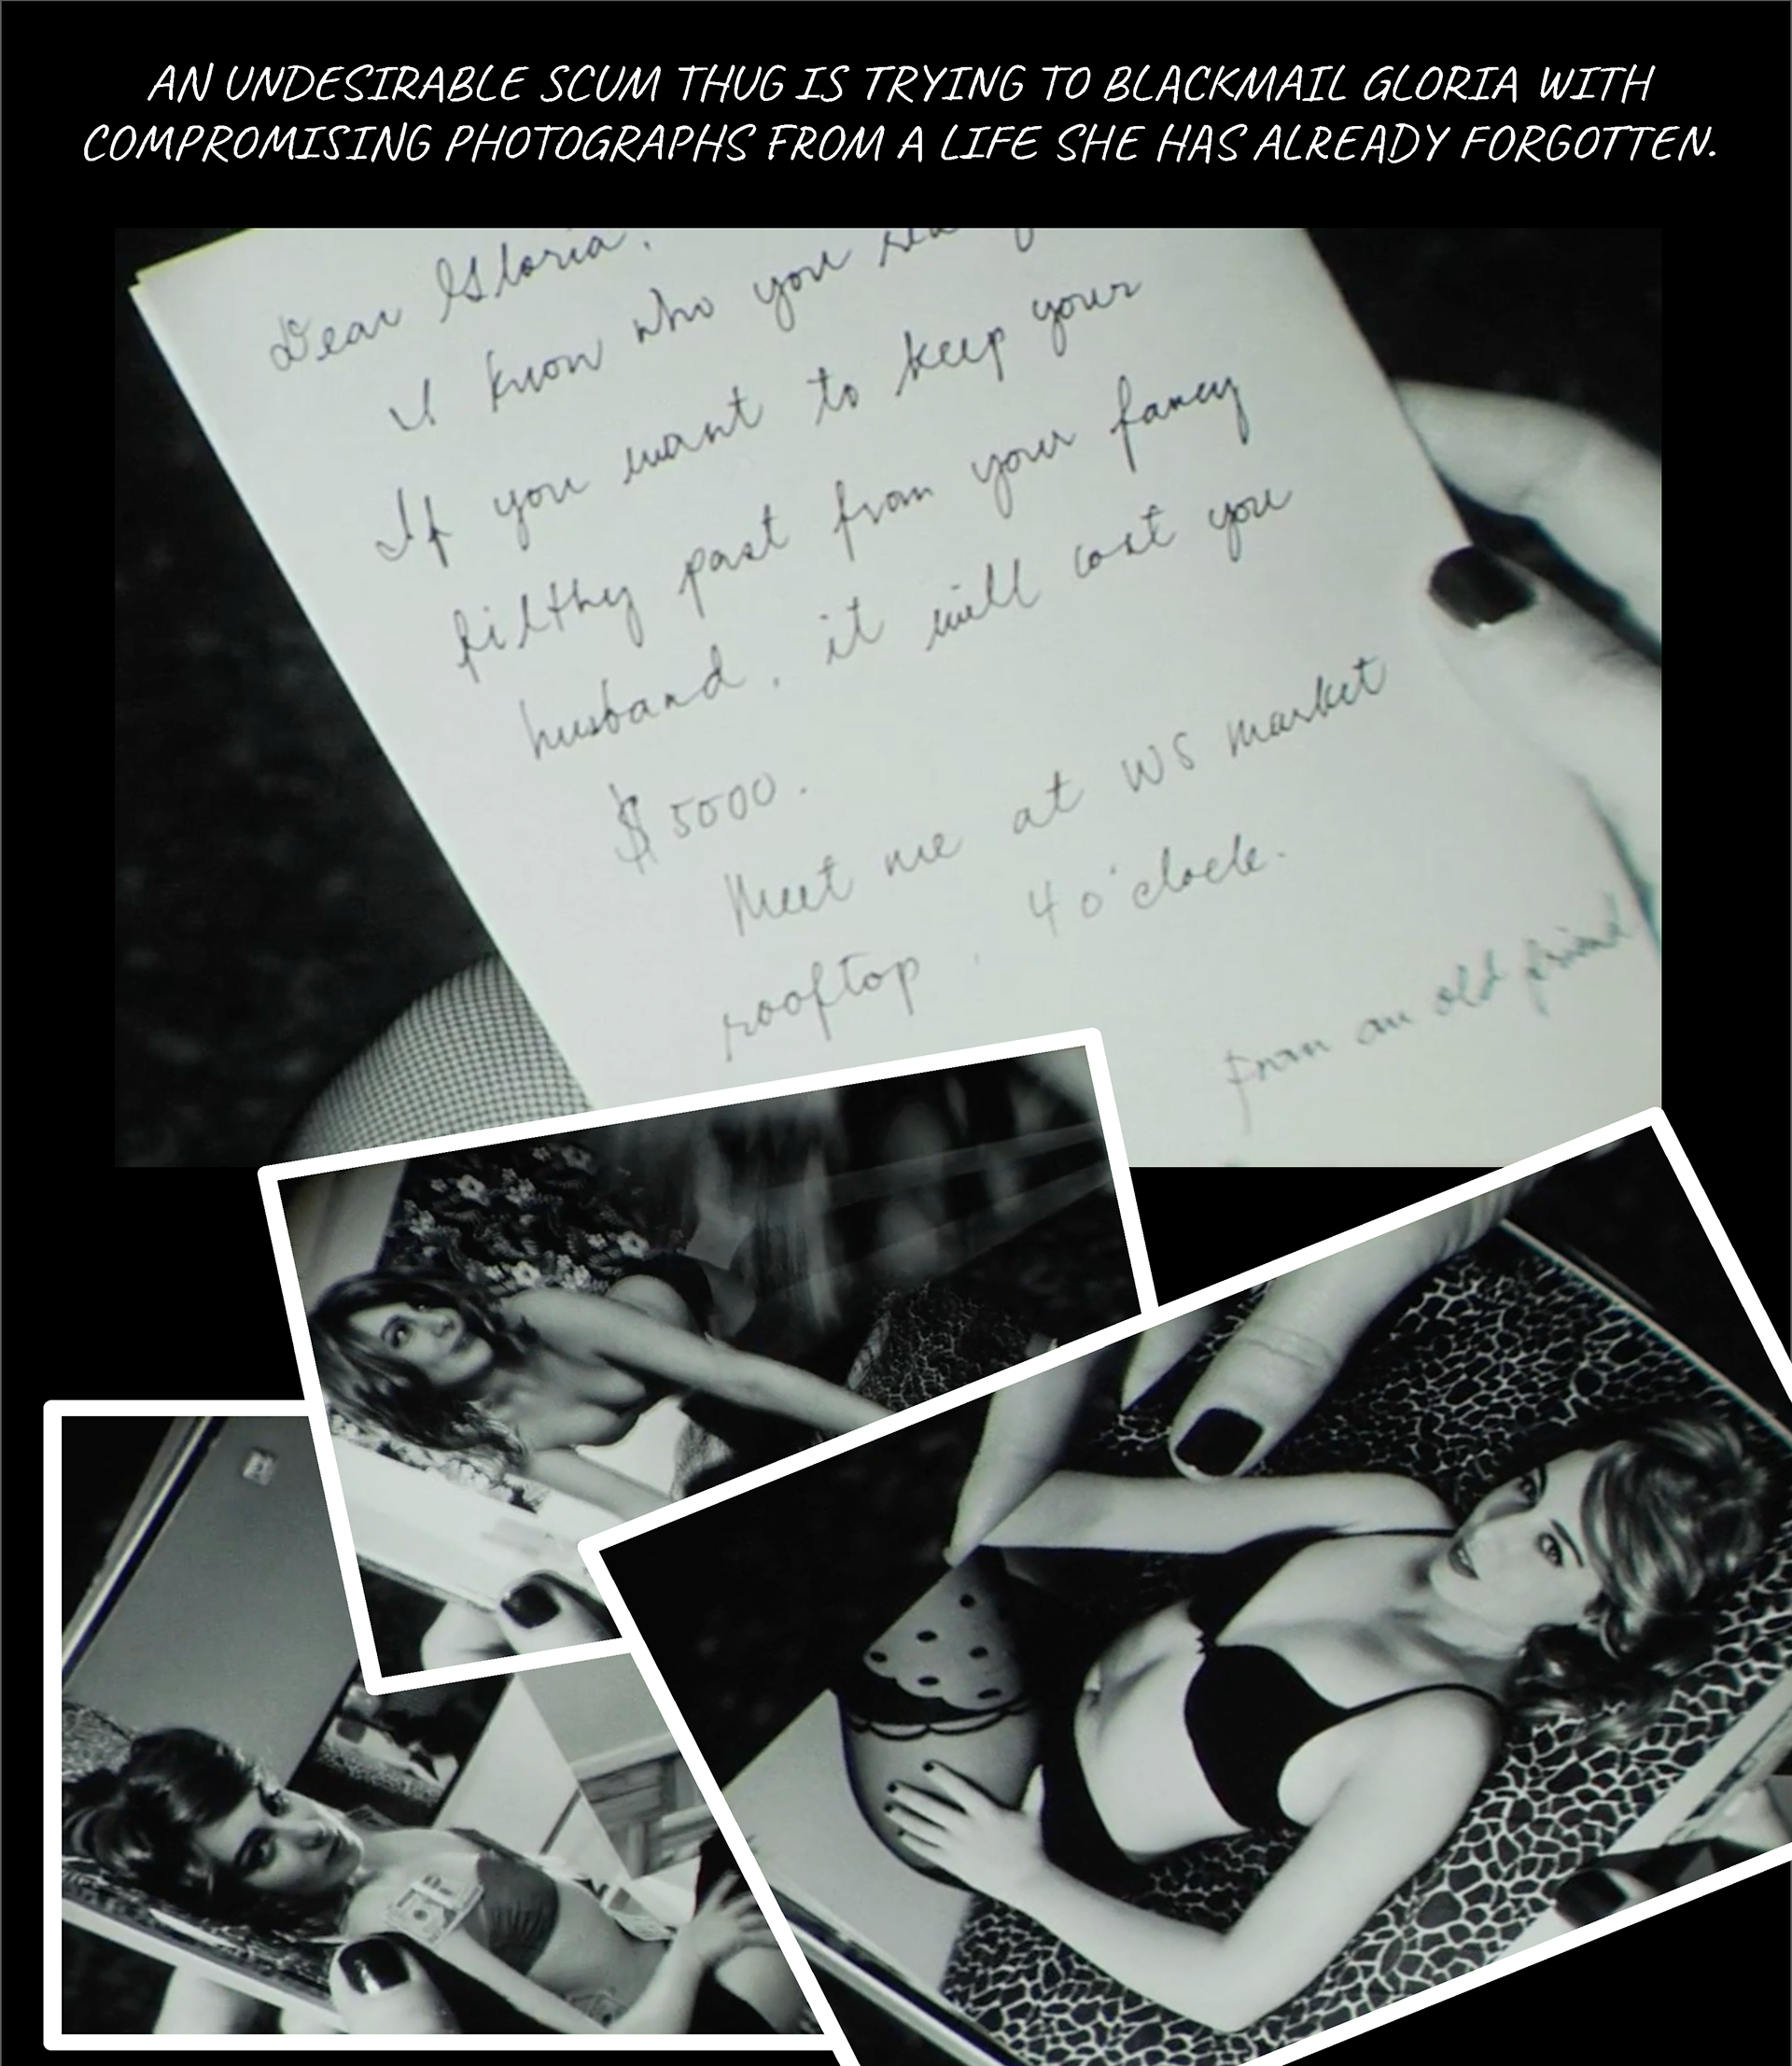 AN UNDESIRABLE SCUM THUG IS TRYING TO BLACKMAIL GLORIA WITH
COMPROMISING PHOTOGRAPHS FROM A LIFE SHE HAS ALREADY FORGOTTEN.
Dear Gloria,
I know who you
If you want to keep your
filthy past from your fancy
husband, it will cost you
$5000.
Meet me at WS market
rooftop, 4 o'clock.
From an old friend